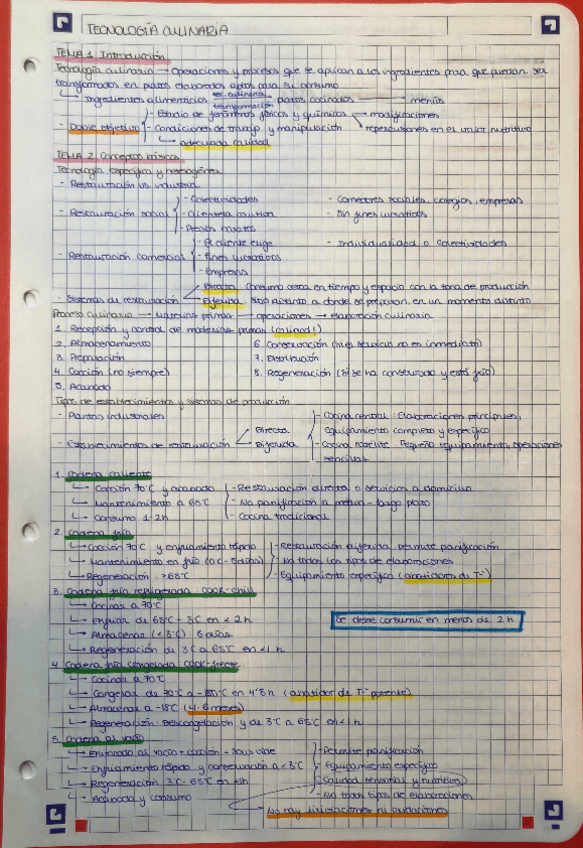 TECNOLOGÍA CULINARIA
TEMA 1. Introducción
Tecnología culinaria → Operaciones y procesos que se aplican a los ingredientes para que puedan ser
transformados en platos elaborados aptos para su consumo
↳ Ingredientes alimenticios tec. culinaria transformación platos cocinados → menús
- Doble objetivo - Estudio de fenómenos físicos y químicos → modificaciones
- Condiciones de trabajo y manipulación repercusiones en el valor nutritivo
↳ adecuada calidad
TEMA 2. Conceptos básicos
Tecnología específica y heterogénea
- Restauración vs industria
- Restauración social - Colectividades - Comedores sociales, colegios, empresas
- Clientela cautiva - Sin fines lucrativos
- Precios bajos
- Restauración comercial - El cliente elige - Individualidad o colectividades
- Fines lucrativos
- Empresa
- Sistemas de restauración Directa Consumo cerca en tiempo y espacio con la zona de producción
Diferida Sitio distinto a donde se preparan, en un momento distinto
Proceso culinario → Materias primas → operaciones → elaboración culinaria
1. Recepción y control de materias primas (calidad!)
2. Almacenamiento 6. Conservación (si el servicio no es inmediato)
3. Preparación 7. Distribución
4. Cocción (no siempre) 8. Regeneración (si se ha conservado y está frío)
5. Acabado
Tipos de establecimientos y sistemas de producción
- Plantas industriales - Cocina central: Elaboraciones principales,
- Establecimientos de restauración Directa equipamiento completo y específico
Diferida - Cocina satélite Pequeño equipamiento, operaciones
sencillas
1. Cadena caliente
↳ Cocción 70°C y acabado - Restauración directa o servicios a domicilio
↳ Mantenimiento a 65°C - No planificación a medio-largo plazo
↳ Consumo 1-2h - Cocina tradicional
2. Cadena fría
↳ Cocción 70°C y enfriamiento rápido - Restauración diferida, permite planificación
↳ Mantenimiento en frío - No todos los tipos de elaboraciones
↳ Regeneración: >65°C - Equipamiento específico (abatidores de Tª)
3. Cadena fría refrigerada cook-chill
↳ Cocinar a 70°C
↳ Enfriar de 65°C - 3°C en < 2h Se debe consumir en menos de 2h
↳ Almacenar (<3°C) 5 días
↳ Regeneración de 3°C a 65°C en <1h
4. Cadena fría congelada cook-freeze
↳ Cocinar a 70°C
↳ Congelar de 70°C a en 4'5h (abatidor de Tª potente)
↳ Almacenar a -18°C (4-6 meses)
↳ Regeneración: Descongelación y de 3°C a 65°C en <1h
5. Cadena al vacío
↳ Envasado al vacío + cocción → sous vide - Permite planificación
↳ Enfriamiento rápido y conservación a <3°C - Equipamiento específico
↳ Regeneración 3°C-65°C en <1h - Calidad sensorial y nutritiva
↳ Acabado y consumo - No todos tipos de elaboraciones
- No hay lixiviaciones ni oxidaciones